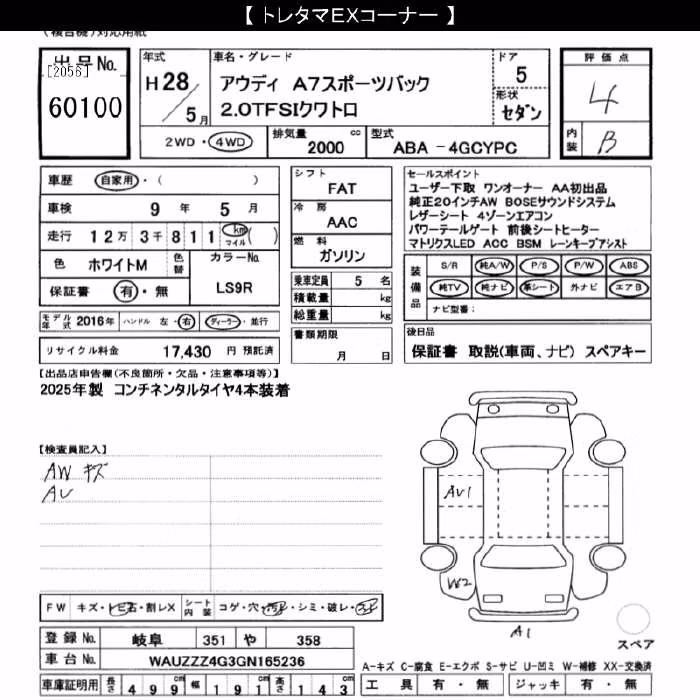 【 トレタマEXコーナー 】
(複合機)対応用紙
出品No.
[2056]
60100
年式
H28/5月
車名・グレード
アウディ A7スポーツバック
2.0TFSIクワトロ
ドア
5
形状
セダン
評価点
4
内装
B
2WD・4WD
排気量 2000 cc
型式 ABA - 4GCYPC
車歴 自家用・( )
車検 9年 5月
走行 12万3千811 km マイル ( )
色 ホワイトM 色替
カラーNo. LS9R
保証書 有・無
シフト
FAT
冷房
AAC
燃料
ガソリン
乗車定員 5 名
積載量 kg
総重量 kg
セールスポイント
ユーザー下取 ワンオーナー AA初出品
純正20インチAW BOSEサウンドシステム
レザーシート 4ゾーンエアコン
パワーテールゲート 前後シートヒーター
マトリクスLED ACC BSM レーンキープアシスト
装備品
S/R 純A/W P/S P/W ABS
純TV 純ナビ 革シート 外ナビ エアB
ナビ型番:
モデル年式 2016年 ハンドル 左・右 ディーラー・並行
リサイクル料金 17,430 円 預託済
書類期限
月 日
後日品
保証書 取説(車両、ナビ) スペアキー
【出品店申告欄(不良箇所・欠品・注意事項等)】
2025年製 コンチネンタルタイヤ4本装着
【検査員記入】
AW キズ
AU
AU1
W2
A1
スペア
FW キズ・トビ石・割レX シート内装 コゲ・穴・汚レ・シミ・破レ・スレ
登録No. 岐阜 351 や 358
車台No. WAUZZZ4G3GN165236
車庫証明用 長さ 499cm 幅 191cm 高さ 143cm
A-キズ C-腐食 E-エクボ S-サビ U-凹ミ W-補修 XX-交換済
工具 有・無 ジャッキ 有・無